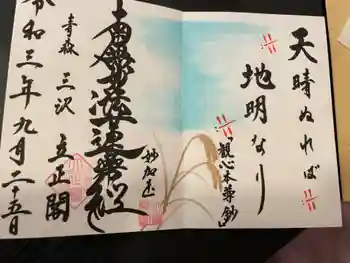 天晴ぬれば
地明なり
『観心本尊鈔』
妙加主
南無妙法蓮華経
立正閣
三沢
令和三年九月二十五日